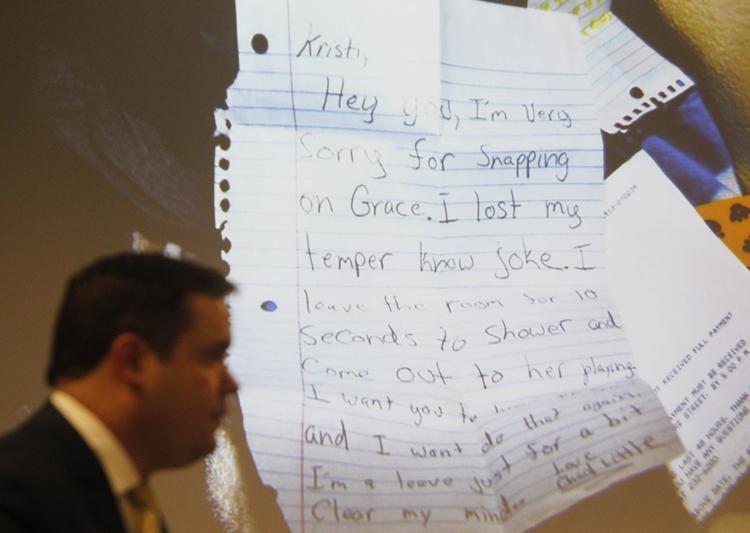 Kristi,
Hey you, I'm very
Sorry for Snapping
on Grace. I lost my
temper know joke. I
leave the room for 10
Seconds to Shower and
Come out to her playing.
I want you to
and I wont do that again.
I'm a leave just for a bit
Clear my mind..
Love
Chad Little
RECEIVED FULL PAYMENT
MUST BE RECEIVED
STREET. BY
LAST 48 HOURS.
HAVE ANY
DATE. THE